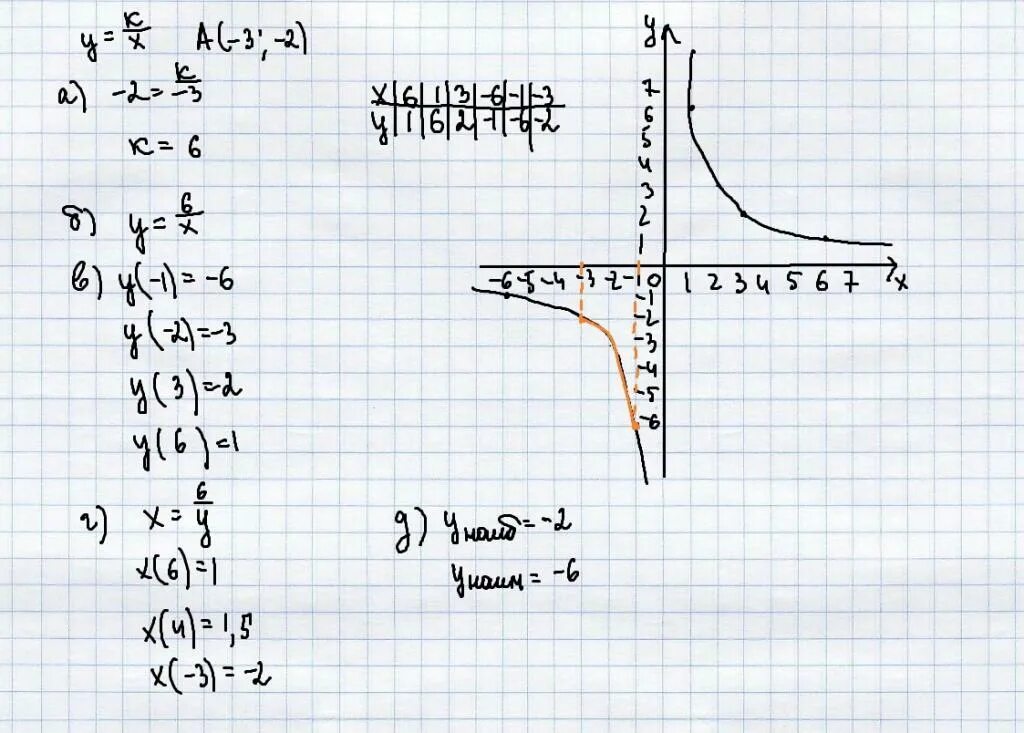 y = к/x A(-3; -2)
а) -2 = к/-3
к = 6
x | 6 | 1 | 3 | -6 | -1 | -3
y | 1 | 6 | 2 | -1 | -6 | -2
б) y = 6/x
в) y(-1) = -6
y(-2) = -3
y(3) = 2
y(6) = 1
г) x = 6/y
x(6) = 1
x(4) = 1,5
x(-3) = -2
д) yнаиб = -2
yнаим = -6
y
7
6
5
4
3
2
1
-6 -5 -4 -3 -2 -1 0 1 2 3 4 5 6 7 x
-1
-2
-3
-4
-5
-6